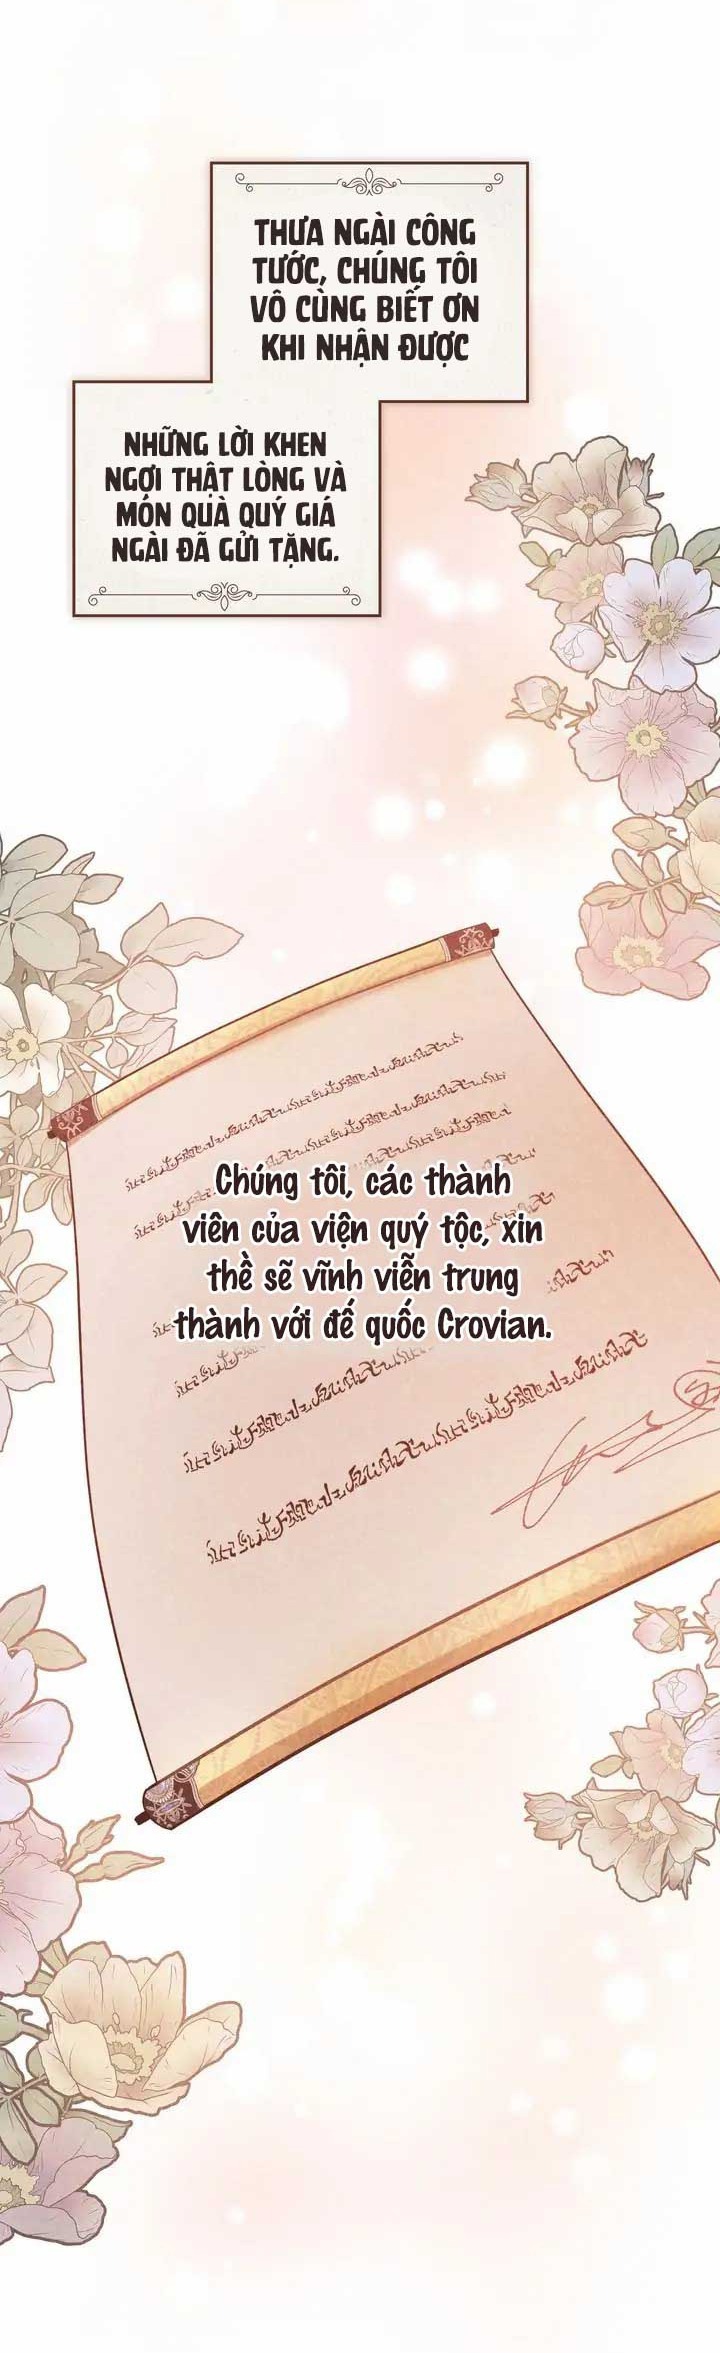 THƯA NGÀI CÔNG
TƯỚC, CHÚNG TÔI
VÔ CÙNG BIẾT ƠN
KHI NHẬN ĐƯỢC
NHỮNG LỜI KHEN
NGỢI THẬT LÒNG VÀ
MÓN QUÀ QUÝ GIÁ
NGÀI ĐÃ GỬI TẶNG.
Chúng tôi, các thành
viên của viện quý tộc, xin
thề sẽ vĩnh viễn trung
thành với đế quốc Crovian.